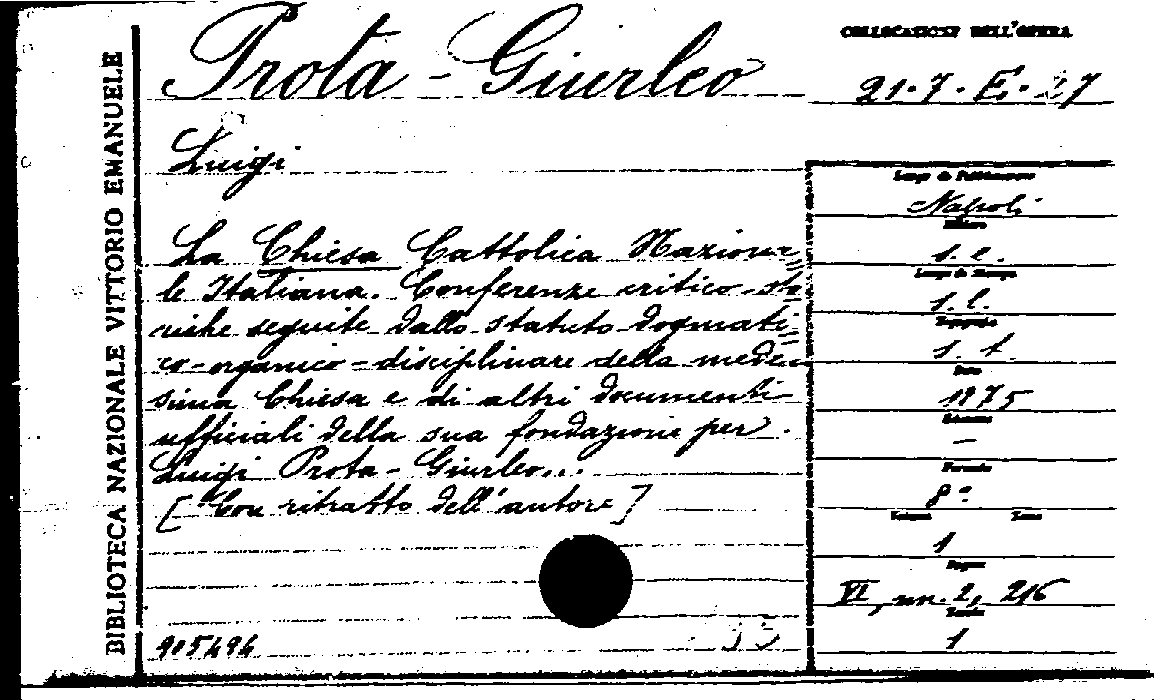 BIBLIOTECA NAZIONALE VITTORIO EMANUELE
Prota-Giurleo
Luigi
La Chiesa Cattolica Naziona
le Italiana. Conferenze critico-sto
riche seguite dallo statuto dogmati
co-organico-disciplinare della mede
sima Chiesa e di altri documenti
ufficiali della sua fondazione per
Luigi Prota-Giurleo...
[Con ritratto dell'autore]
905494
COLLOCAZIONE DELL'OPERA
21.7.E.27
Luogo di Pubblicazione
Napoli
Editore
s. e.
Luogo di Stampa
s. l.
Tipografia
s. t.
Data
1875
Edizione
—
Formato
8°
Volumi Tomo
1
Pagine
VI, nn. 2, 216
1